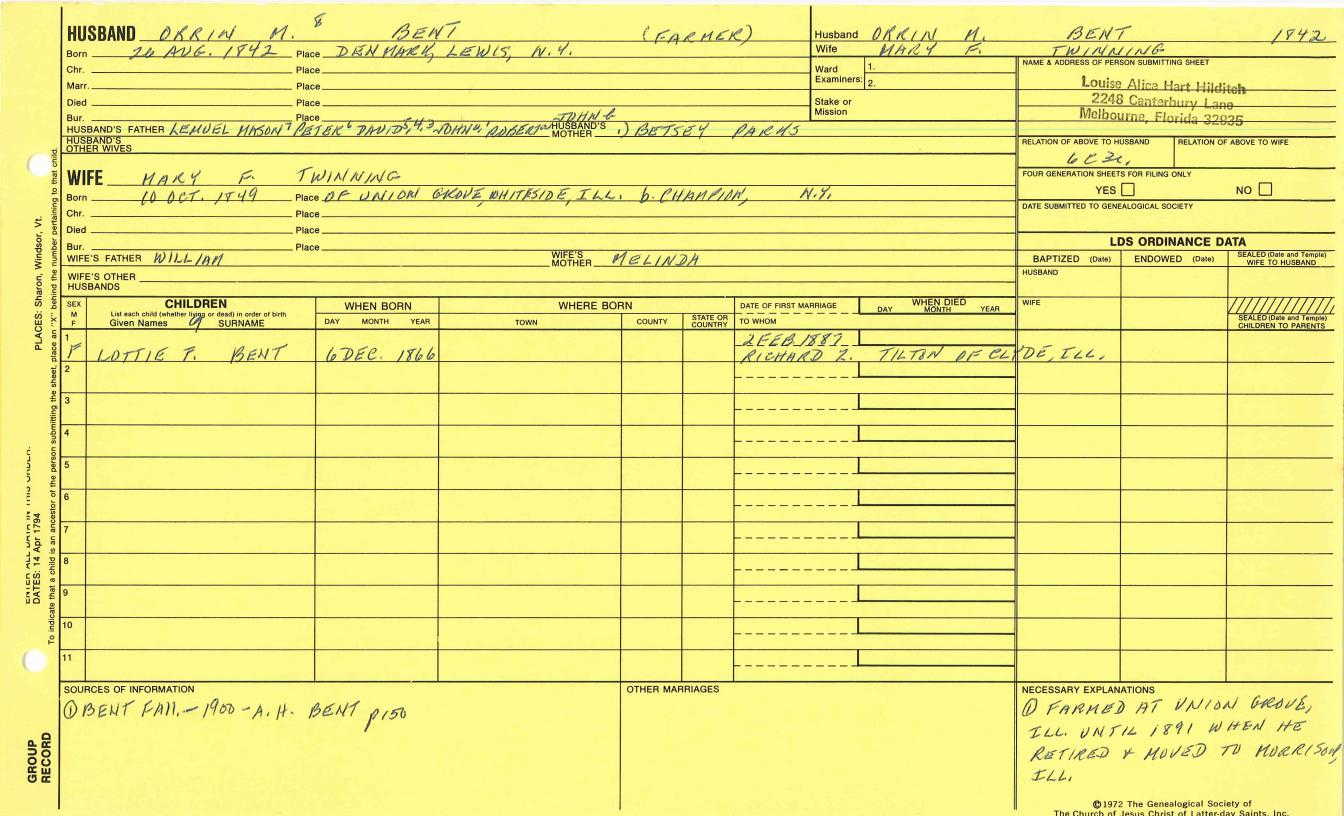 HUSBAND ORRIN M. 8 BENT (FARMER)
Born 26 AUG. 1842 Place DENMARK, LEWIS, N.Y.
Chr. Place
Marr. Place
Died Place
Bur. Place
HUSBAND'S FATHER LEMUEL MASON7 PETER6 DAVID5,4,3 JOHN2,1 ROBERT JOHN HUSBAND'S MOTHER BETSEY PARKS
HUSBAND'S OTHER WIVES
Husband ORRIN M. BENT 1842
Wife MARY F. TWINNING
Ward Examiners: 1.
2.
Stake or Mission
NAME & ADDRESS OF PERSON SUBMITTING SHEET
Louise Alice Hart Hilditch
2248 Canterbury Lane
Melbourne, Florida 32935
RELATION OF ABOVE TO HUSBAND RELATION OF ABOVE TO WIFE
6C3R.
FOUR GENERATION SHEETS FOR FILING ONLY
YES NO
DATE SUBMITTED TO GENEALOGICAL SOCIETY
WIFE MARY F. TWINNING
Born 10 OCT. 1849 Place OF UNION GROVE, WHITESIDE, ILL. b. CHAMPION, N.Y.
Chr. Place
Died Place
Bur. Place
WIFE'S FATHER WILLIAM WIFE'S MOTHER MELINDA
WIFE'S OTHER HUSBANDS
LDS ORDINANCE DATA
BAPTIZED (Date) ENDOWED (Date) SEALED (Date and Temple) WIFE TO HUSBAND
HUSBAND
WIFE
SEALED (Date and Temple) CHILDREN TO PARENTS
SEX M F
CHILDREN
List each child (whether living or dead) in order of birth
Given Names 9 SURNAME
WHEN BORN
DAY MONTH YEAR
WHERE BORN
TOWN COUNTY STATE OR COUNTRY
DATE OF FIRST MARRIAGE
TO WHOM
WHEN DIED
DAY MONTH YEAR
1 2 FEB 1887
F LOTTIE F. BENT 6 DEC. 1866 RICHARD Z. TILTON OF CLYDE, ILL.
2
3
4
5
6
7
8
9
10
11
SOURCES OF INFORMATION
① BENT FAM. - 1900 - A.H. BENT p150
OTHER MARRIAGES
NECESSARY EXPLANATIONS
① FARMED AT UNION GROVE,
ILL. UNTIL 1891 WHEN HE
RETIRED & MOVED TO MORRISON,
ILL.
©1972 The Genealogical Society of
The Church of Jesus Christ of Latter-day Saints, Inc.
ENTER ALL DATA IN THIS ORDER:
DATES: 14 Apr 1794
PLACES: Sharon, Windsor, Vt.
To indicate that a child is an ancestor of the person submitting the sheet, place an "X" behind the number pertaining to that child.
GROUP
RECORD